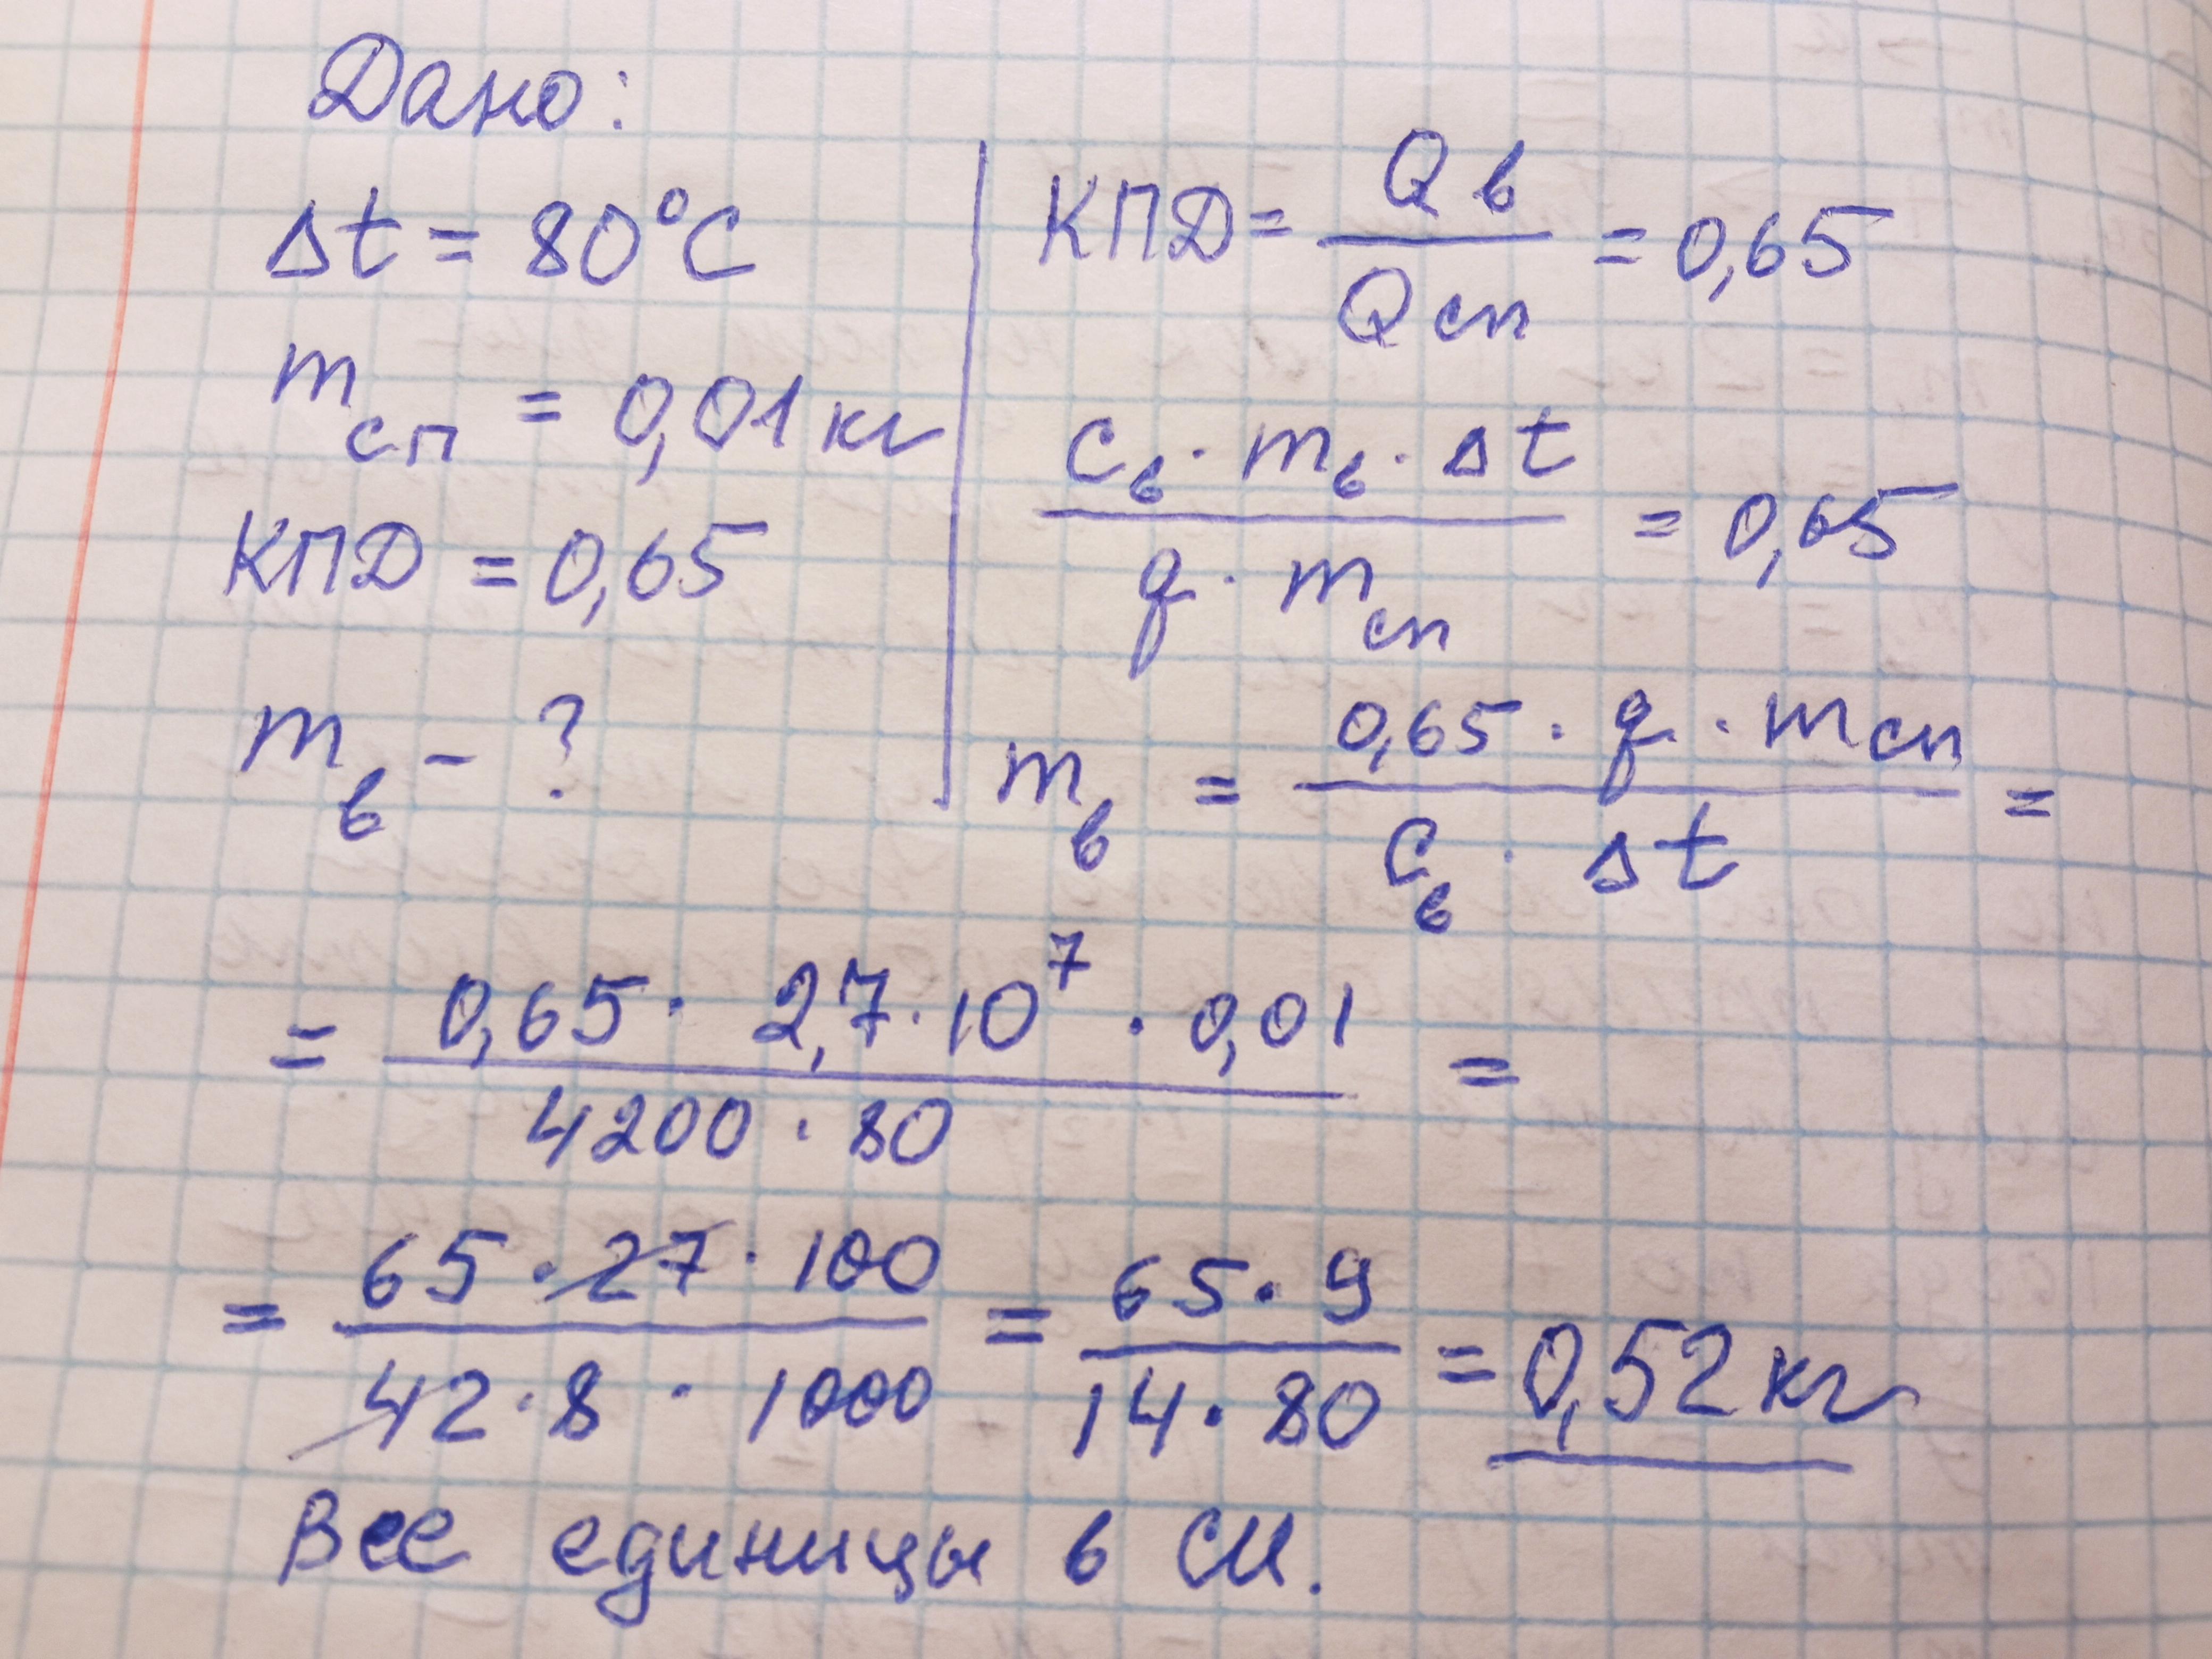 Дано:
Δt = 80°C
m сп = 0,01 кг
КПД = 0,65
m в - ?
КПД = Qв / Qсп = 0,65
cв · mв · Δt / q · mсп = 0,65
mв = 0,65 · q · mсп / cв · Δt =
= 0,65 · 2,7 · 10⁷ · 0,01 / 4200 · 80 =
= 65 · 27 · 100 / 42 · 8 · 1000 = 65 · 9 / 14 · 80 = 0,52 кг
Все единицы в СИ.